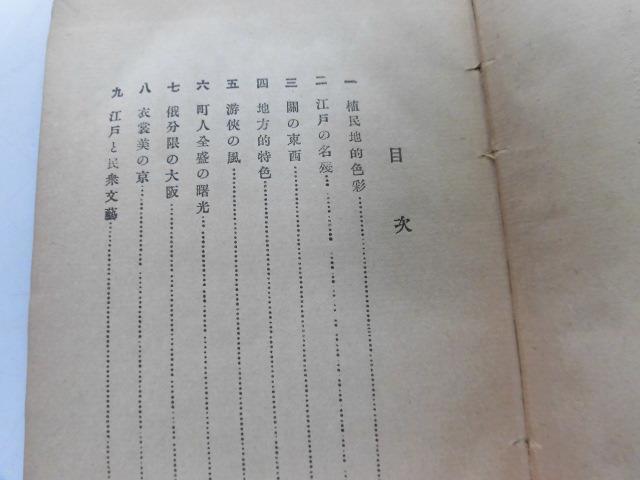 目次
一 植民地的色彩
二 江戸の名殘
三 關の東西
四 地方的特色
五 游俠の風
六 町人全盛の曙光
七 俄分限の大阪
八 衣裳美の京
九 江戸と民衆文藝